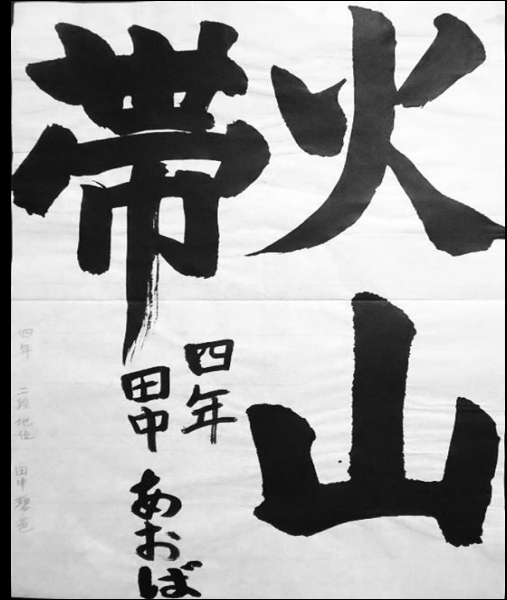 火山
帯
四年
田中 あおば
四年 二段 田中 碧